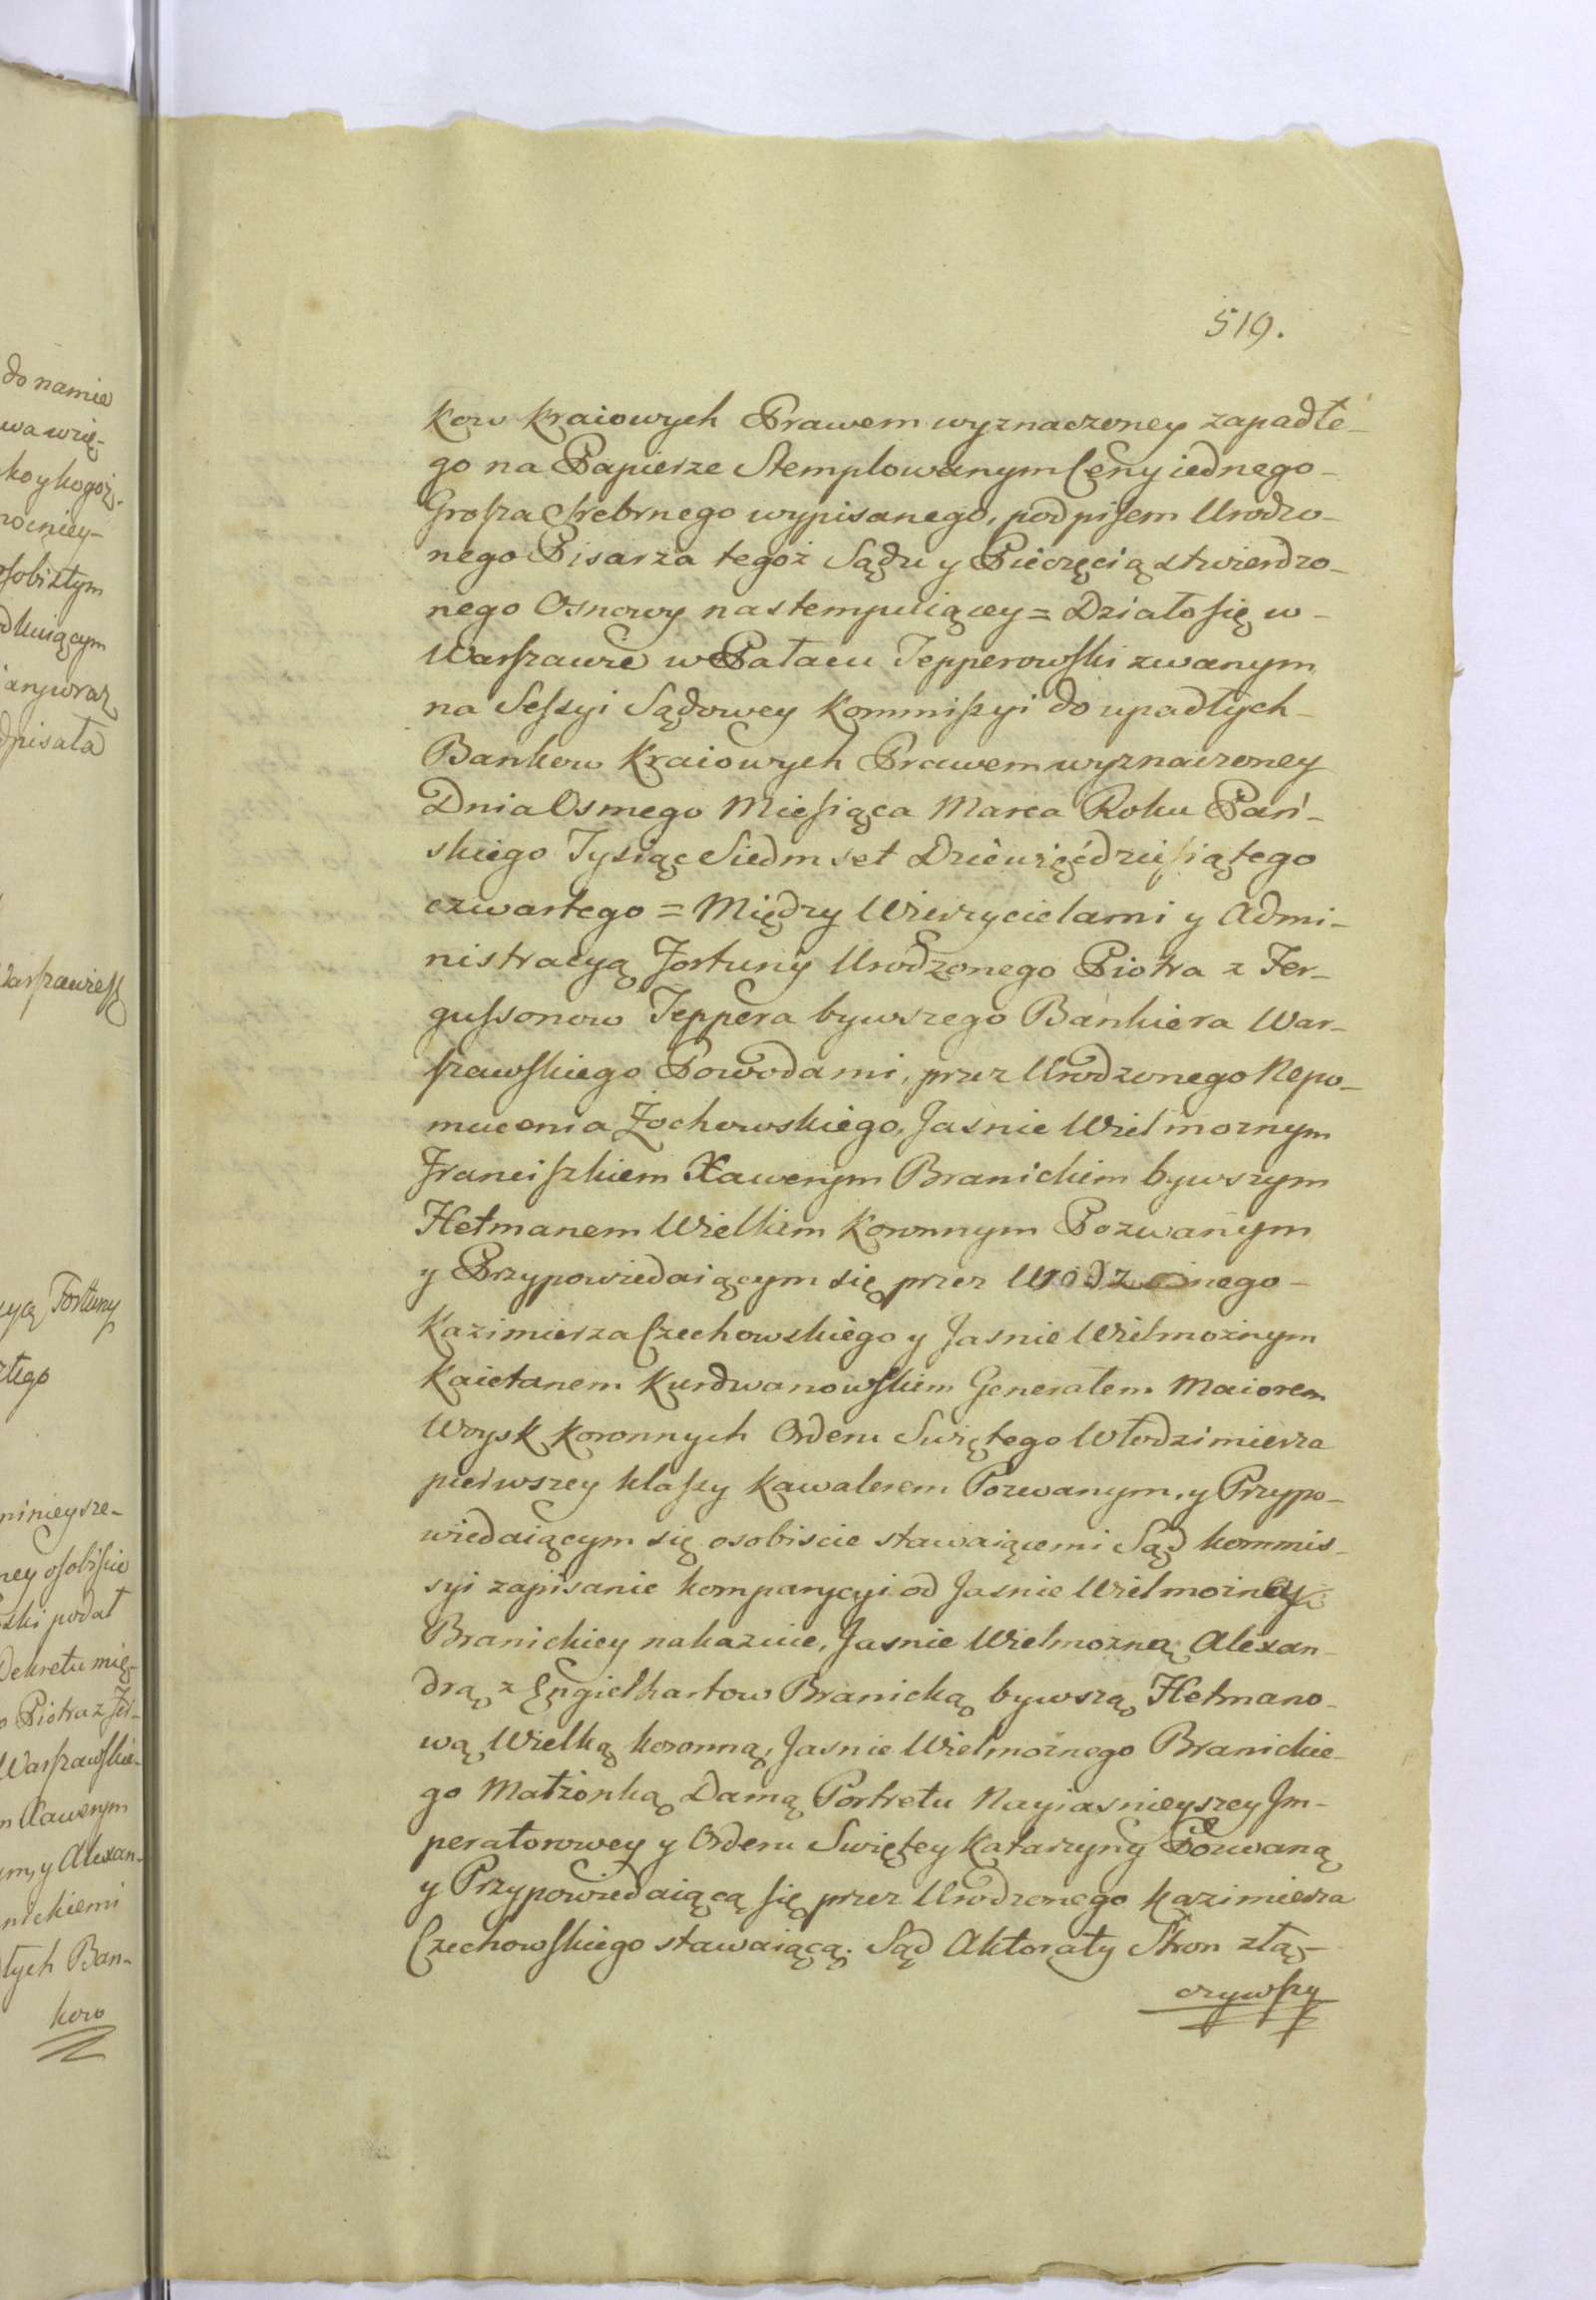 do namie
wa wię-
ko y kogoż-
rocniey-
osobistym
dkuiącym
any wraz
dpisała
Warszawie
cyą Fortuny
złego
ninieysze-
ney osobiście
ski podał
Dekretu mię-
o Piotra z Fer-
Warszawskie-
m Xawerym
ym, y Alexan-
nickiemi
dłych Ban-
kow
519.
kow kraiowych Prawem wyznaczoney zapadłe-
go na Papierze Stemplowanym Ceny iednego-
Grosza Srebrnego wypisanego, podpisem Urodzo-
nego Pisarza tegoż Sądu y Pieczęcią stwierdzo-
nego Osnowy nastempuiącey = Działo się w-
Warszawie w Pałacu Tepperowski zwanym
na Sessyi Sądowey Kommissyi do upadłych-
Bankow Kraiowych Prawem wyznaczoney
Dnia Osmego Miesiąca Marca Roku Pań-
skiego Tysiąc Siedmset Dziewięćdziesiątego
czwartego = Między Wierzycielami y Admi-
nistracyą Fortuny Urodzonego Piotra z Fer-
gussonow Teppera bywszego Bankiera War-
szawskiego Powodami, przez Urodzonego Nepo-
mucena Żochowskiego, Jasnie Wielmoznym
Franciszkiem Xawerym Branickim bywszym
Hetmanem Wielkim Koronnym Pozwanym
y Przypowiedaiącym się przez Urodzonego-
Kazimierza Czechowskiego y Jasnie Wielmożnym
Kaietanem Kurdwanowskiem Generałem Maiorem
Woysk Koronnych Orderu Swiętego Włodzimierza
pierwszey klassy Kawalerem Pozwanym, y Przypo-
wiedaiącym się osobiscie stawaiącemi Sąd kommis-
syi zapisanie komparycyi od Jasnie Wielmożney
Branickiey nakazuie, Jasnie Wielmożną Alexan-
drą z Engielhartow Branicką bywszą Hetmano-
wą Wielką koronną, Jasnie Wielmożnego Branickie-
go Małżonką Damą Portretu Nayiasnieyszey Jm-
peratorowey y Orderu Swiętey Katarzyny Pozwaną
y Przypowiedaiącą się przez Urodzonego Kazimierza
Czechowskiego stawaiącą. Sąd Aktoraty Stron złą-
czywszy